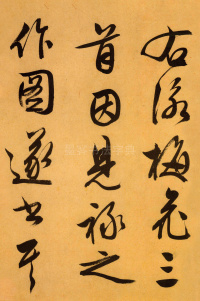 右詠梅花三
首因見禄之
作圖遂書其